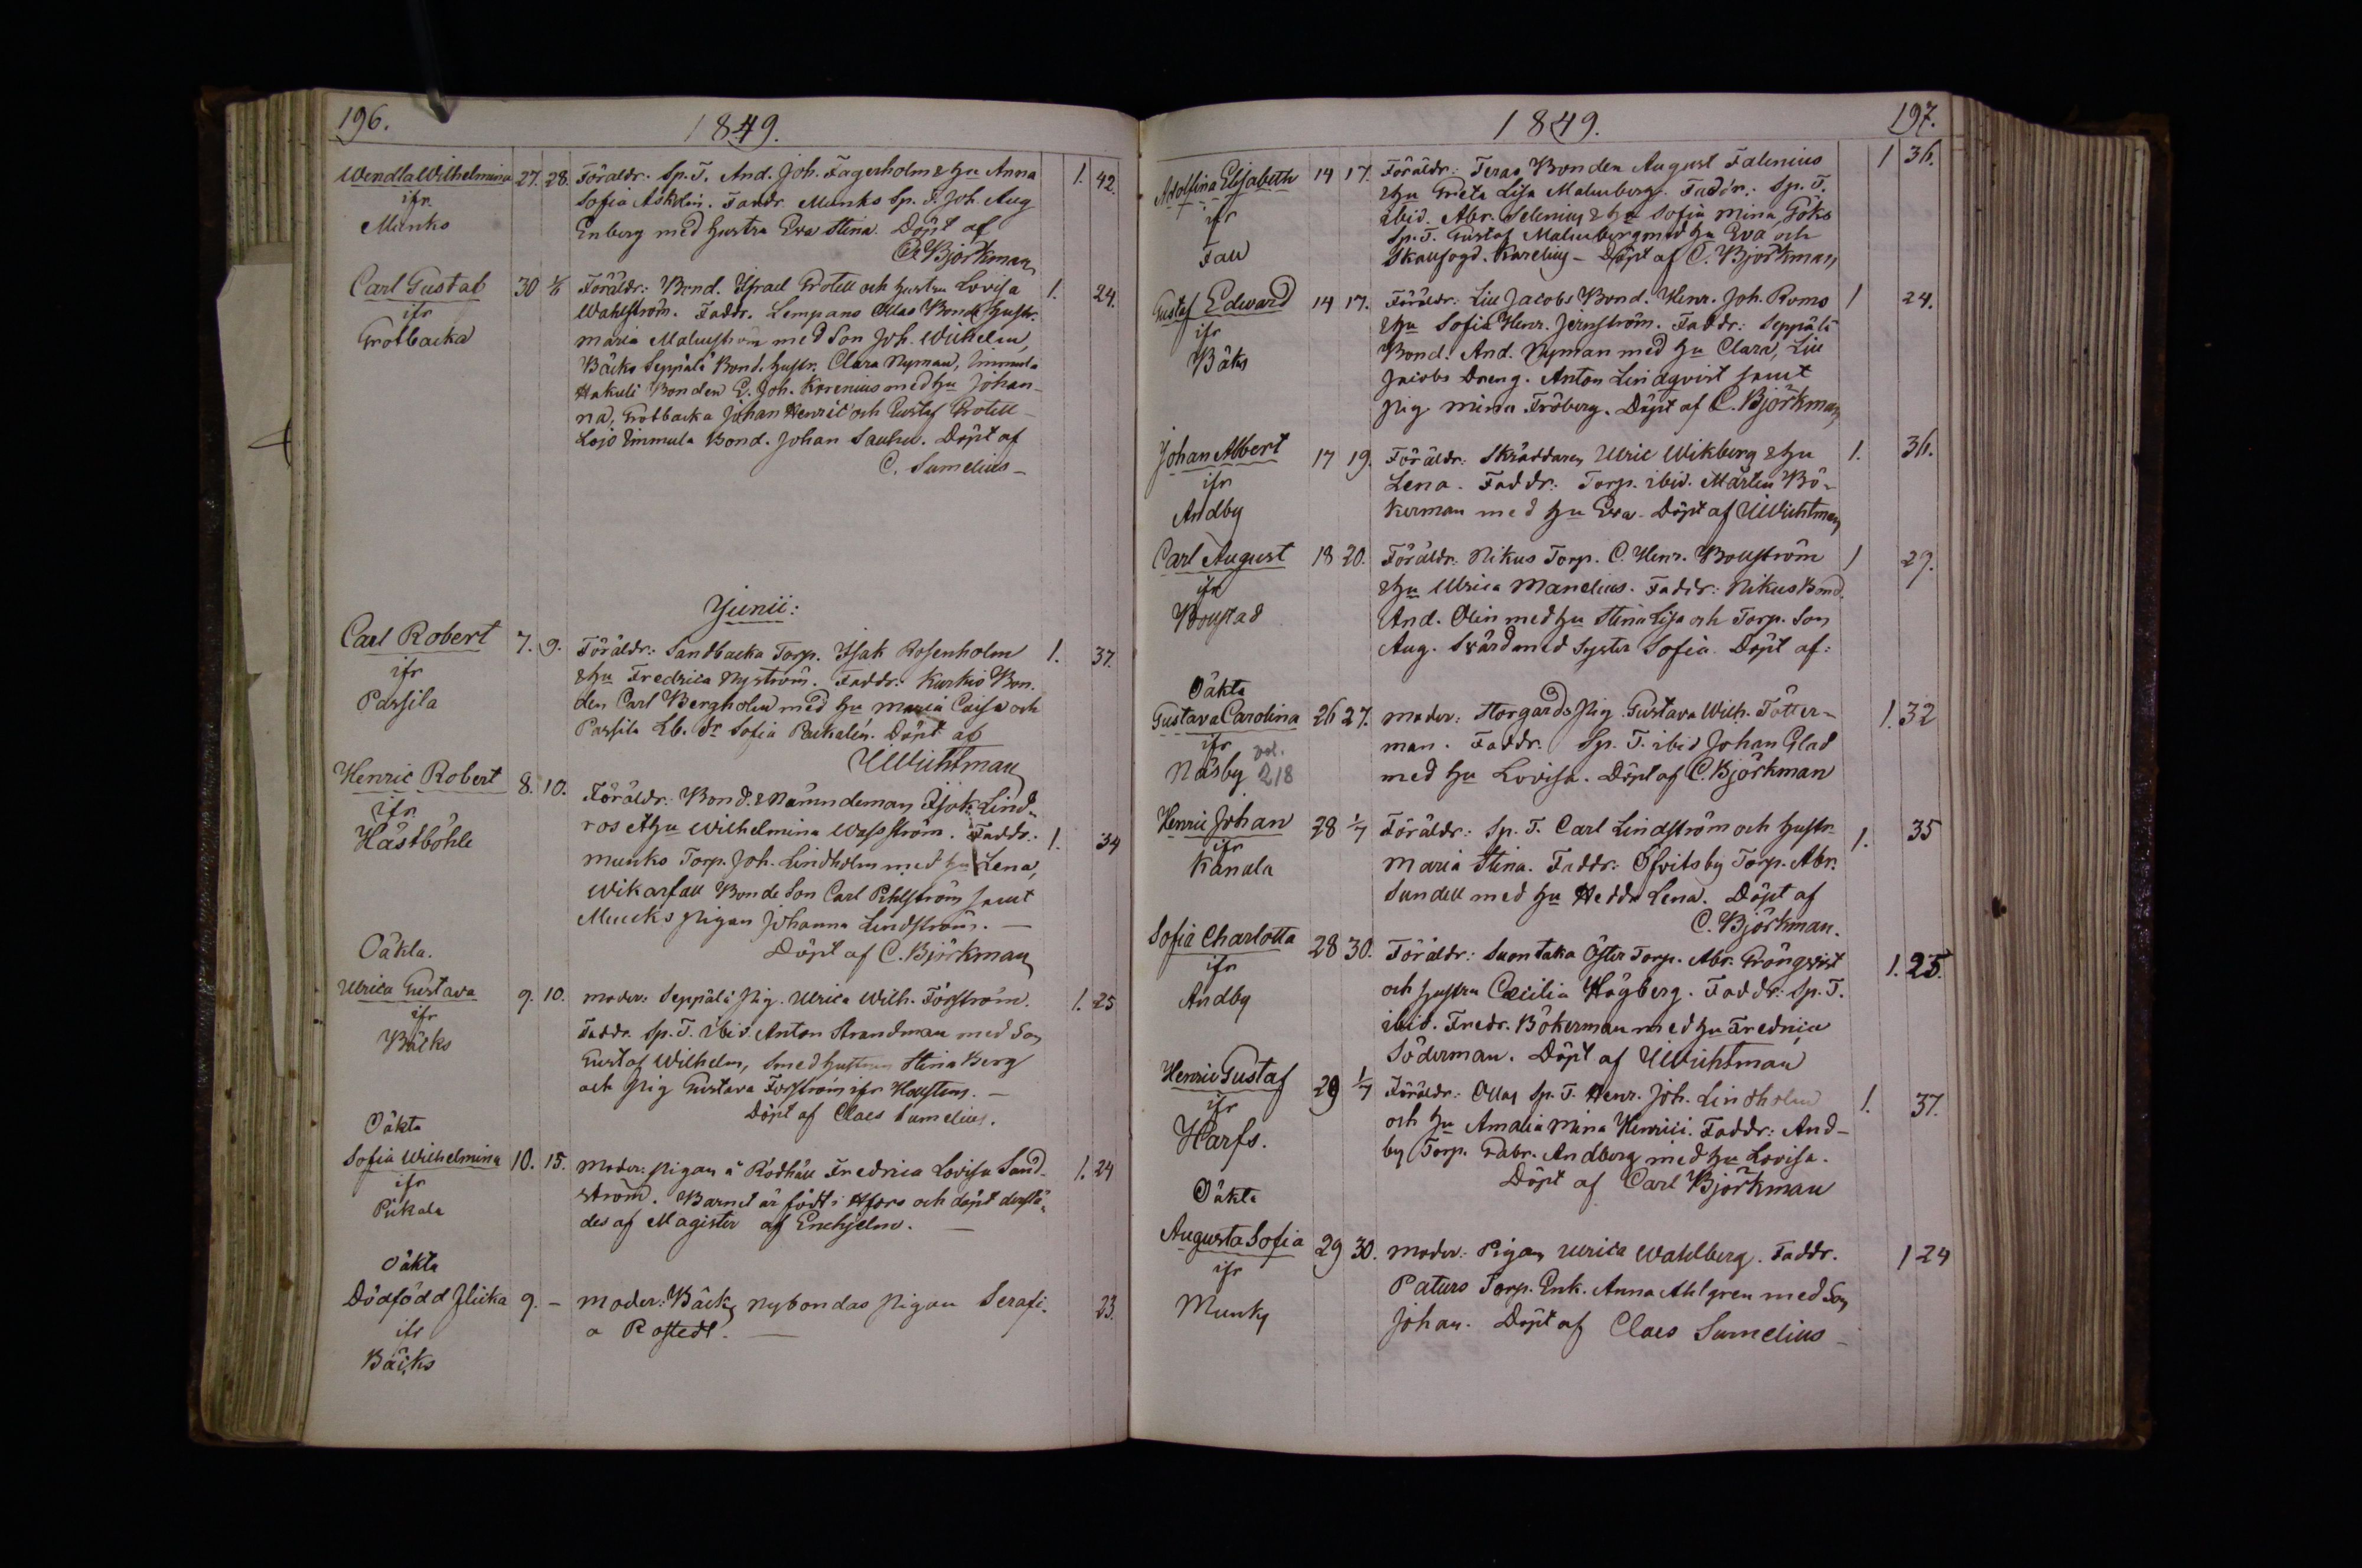 196.
1849.
Wendla Wilhelmina 27. 28. Föräldr. Sp. T. And. Joh. Fagerholm & hu Anna 1. 42.
ifr. Sofia Askelin. Faddr. Munks Sp. T. Joh. Aug
Munks Enberg med hustru Eva Stina. Döpt af
C. Björkman
Carl Gustaf 30 1/6 Föräldr: Bond. Israel Grotell och hustru Lovisa 1. 24.
ifr Wahlström. Faddr. Lempans Bonde hustr.
Grotbacka Maria Malmström med Son Joh. Wilhelm,
Bäcks Seppälä Bond. hustr. Clara Nyman, Immula
Hakuli Bonden G. Joh. Korenius med hu Johan-
na, Grotbacka Johan Henric och Gustaf Grotell
Lojo Immula Bond. Johan Sauhu. Döpt af
C. Sumelius
Junii:
Carl Robert 7. 9. Föräldr: Sandbacka Torp. Isak Rosenholm 1. 37.
ifr & hu Fredrica Nyström. Faddr: Kurkis Bon-
Passila den Carl Bergholm med hu Maria Caisa och
Passila Sofia Döpt af
U Wichtman
Henric Robert 8. 10. Föräldr: Bond. & Nämndeman Isak Lind-
ifr ros & hu Wilhelmina Wasström. Faddr. 1. 34
Hästböhle Munks Torp. Joh. Lindholm med hu Lena,
Wikarfall Bonde Son Carl Pihlström samt
Muncks pigan Johanna Lindström.
Döpt af C. Björkman
Oäkta.
Ulrica Gustava 9. 10. Moder: Seppälä pig. Ulrica Wilh. Forsström. 1. 25
ifr Faddr. Sp. T. ibid. Anton Strandman med Son
Bäcks Gustaf Wilhelm, Smed hustrun Stina Berg
och pig Gustava Forsström ifr
Döpt af Claes Sumelius.
Oäkta
Sofia Wilhelmina 10. 15. Moder: pigan å Rödhäll Fredrica Lovisa Sand- 1. 24
ifr ström. Barnet är födt i Hfors och döpt derstä-
Pikala des af Magister af Enehjelm.
Oäkta
Dödfödd flicka 9. - Moder: Bäcks Nybondas pigan Serafi- 23.
ifr a Rostedt.
Bäcks
1849.
197.
Adolfina Elisabeth 14 17. Föräldr: Teras Bonden August Falenius 1 36.
ifr & hu Greta Lisa Malmberg. Faddr: Sp. T.
Fall ibid. Abr. Selenius & hu Sofia Mina, Göks
Sp. T. Gustaf Malmberg med hu Eva och
Skaufogd. Karelius - Döpt af C. Björkman
Gustaf Edward 14 17. Föräldr: Lill Jacobs Bond. Henr. Joh. Roms 1 24.
ifr & hu Sofia Henr. Jernström. Faddr: Seppälä
Bäks Bond. And. Nyman med hu Clara, Lill
Jacobs Dreng. Anton Lindqvist samt
pig Mina Fröberg. Döpt af C. Björkman
Johan Albert 17 19. Föräldr: Skräddaren Ulric Wikberg & hu 1. 36.
ifr Lena. Faddr: Torp. ibid. Mårten Bö-
Andby kerman med hu Eva. Döpt af U Wichtman
Carl August 18 20. Föräldr: Nikus Torp. C. Henr. Bollström 1 29.
ifr & hu Ulrica Manelius. Faddr: Nikus Bond.
Bollstad And. Olin med hu Stina Lisa och Torp. Son
Aug. Svärd med Syster Sofia. Döpt af:
Oäkta
Gustava Carolina 26 27. Moder: Storgårds pig. Gustava Wilh. Tötter- 1. 32
ifr man. Faddr. Sp. T. ibid Johan Glad
Näsby 218 med hu Lovisa. Döpt af C. Björkman
Henric Johan 28 1/7 Föräldr: Sp. T. Carl Lindström och hustr. 1. 35
ifr Maria Stina. Faddr: Öfvitsby Torp. Abr.
Kanala Sundell med hu Hedda Lena. Döpt af
C. Björkman.
Sofia Charlotta 28 30. Föräldr: Suontaka Öster Torp. Abr. Grönqvist 1. 25.
ifr och hustru Cæcilia Högberg. Faddr: Sp. T.
Andby ibid. Fredr. Bökerman med hu Fredrica
Söderman. Döpt af U Wichtman
Henric Gustaf 29 1/7 Föräldr: Ollas Sp. T. Henr. Joh. Lindholm 1. 37.
ifr och hu Amalia Mina Henrici. Faddr: And-
Harfs. by Torp. Gabr. Andberg med hu Lovisa.
Döpt af Carl Björkman
Oäkta
Augusta Sofia 29 30. Moder: Pigan Ulrica Wahlberg. Faddr. 1 24
ifr Paturs Torp. Enk. Anna Ahlgren med Son
Munks Johan. Döpt af Claes Sumelius